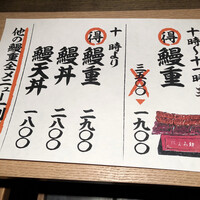 十時〜十一時
得 鰻重
三五〇〇
一九〇〇
十時より
得 鰻重 二九〇〇
鰻丼 二八〇〇
鰻天丼 一八〇〇
他の鰻重全メニュー